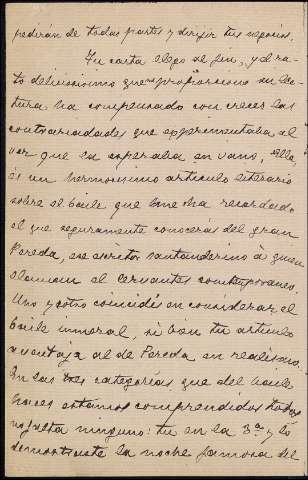 pedirán de todas partes y dirigir tus negocios.
Tu carta llegó al fin, y el ra-
to deliciosísimo que me proporcionó su lec-
tura ha compensado con creces las
contrariedades que experimentaba al
ver que la esperaba en vano. Ella
es un hermosísimo artículo literario
sobre el baile que me ha recordado
el que seguramente conocerás del gran
Pereda, ese escritor santanderino á quien
llaman el Cervantes contemporáneo.
Uno y otro coincidís en considerar el
baile inmoral, si bien tu artículo
aventaja al de Pereda en realismo.
En las tres categorías que del baile
haces estamos comprendidos todos
no falta ninguno: tu en la 3ª y lo
demostraste la noche famosa del